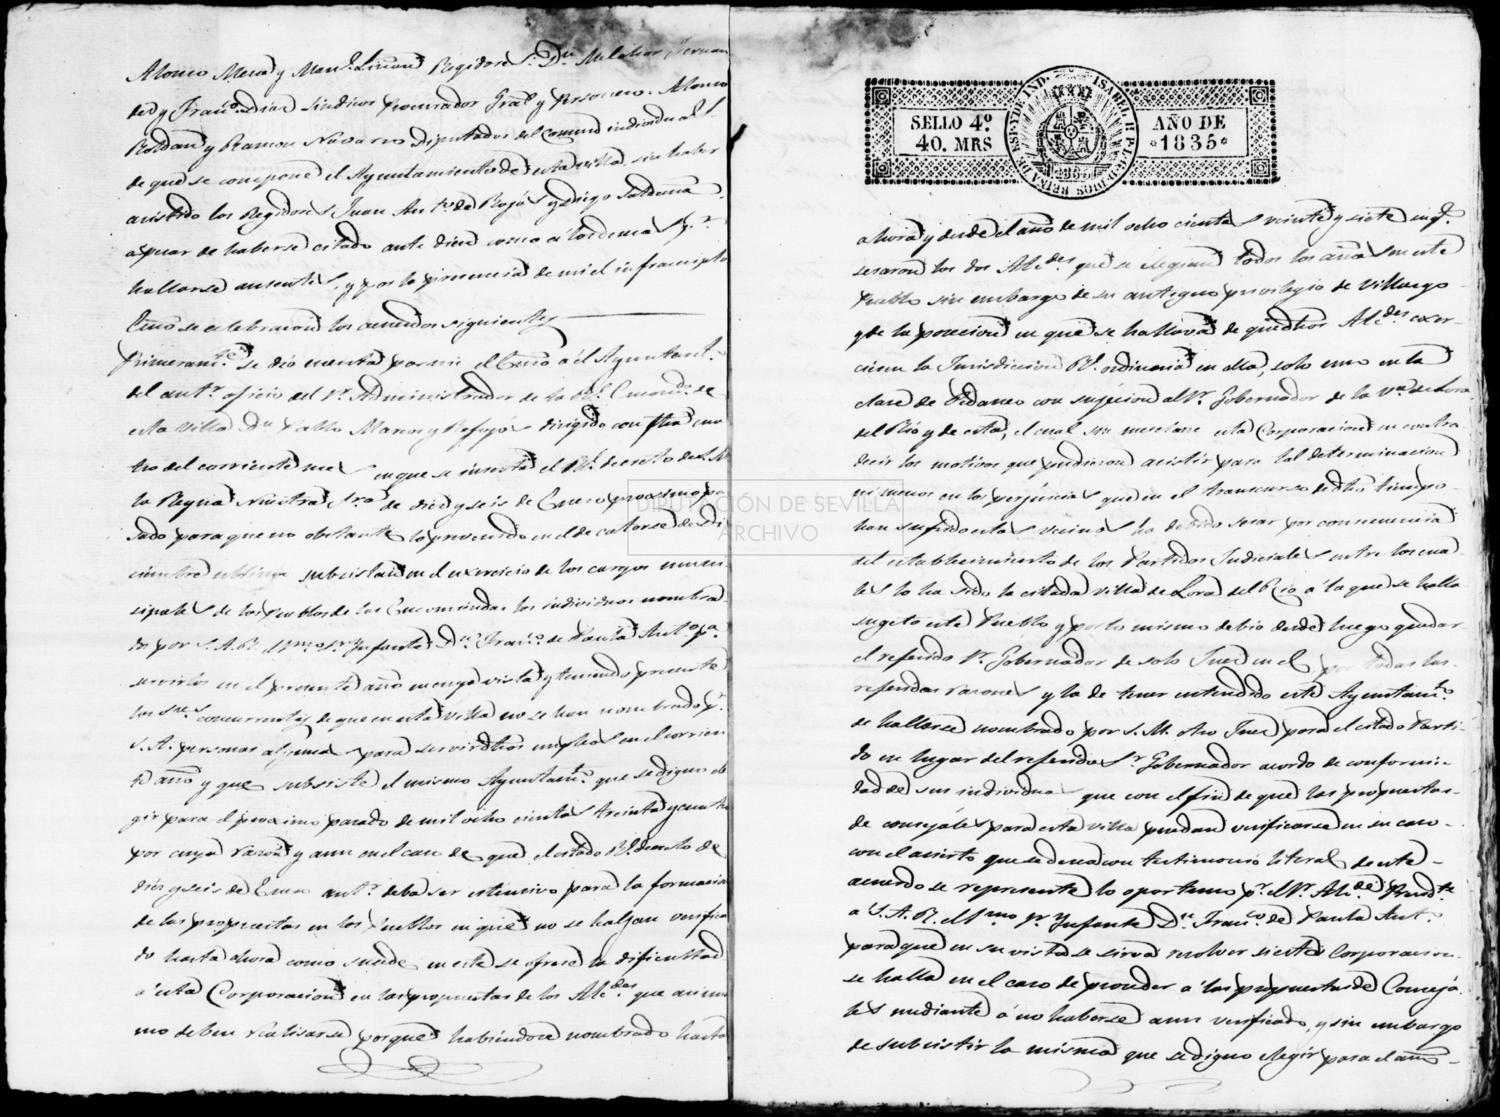 Alonso Mesa y Man.l Liñan Regidores S. Dn. Melchor Fernan
dez y Fran.co Dian Sindicos Procurador Gral y Personero. Alonso
Roldan y Ramon Navarro Diputados del Comun individuos
de que se compone el Ayuntamiento de esta villa, sin haber
asistido los Regidores Juan Ant.o de Rojas y Diego Saldaña
apesar de haberse citado ante diem como á los demas p.r
hallarse ausentes, y por la presencia de mi el infrascripto
Esno se celebraron los acuerdos siguientes
Primeram.te se dio cuenta por mi el Esno á el Ayuntam.to
del ant.r oficio del Sr. Administrador de la Rl. Encom.da de
esta Villa Dn Pablo Marcos y Refojos dirigido con fha cua
tro del corriente mes en que se inserta el Rl. decreto de S. M.
la Reyna Nuestra Sra de diez y seis de Enero proximo pa
sado para que no obstante lo prevenido en el de catorse de Di
ciembre ultimo subsistan en el exercicio de los cargos muni
sipales de los Pueblos de las Encomiendas los individuos nombra
dos por S. A. R. el Smo Sr Infante Dn. Fran.co de Paula Ant.o pa
servirlos en el presente año en cuya vista y teniendo presente
los Sres. concurrentes de que en esta villa no se han nombrado p.r
S. A. personas algunas para servir dhos empleos en el corrien
te año y que subsiste el mismo Ayuntam.to que se digno ele
gir para el proximo pasado de mil ocho cientos treinta y cuatro
por cuya razon y aun en el caso de que el citado Rl. decreto de
diez y seis de Enero ant.r deba ser estensivo para la formacion
de las propuestas en los Pueblos en que no se hallan verifica
do hasta ahora como sucede en este se ofrese la dificultad
á esta Corporacion en las propuestas de los Alcdes que asimis
mo deben realisarse porque habiendose nombrado hasta
SELLO 4.º
40. MRS
ISABEL II. P. L. G. DE DIOS REINA DE ESP. Y DE IND.
1835
AÑO DE
1835
ahora y desde el año de mil ocho cientos veinte y siete en q.e
sesaron los dos Alcdes que se elegian todos los años en este
Pueblo sin embargo de su antiguo privilegio de Villasgo
y de la posecion en que se hallava de que dhos Alcdes exer
ciesen la Jurisdiccion Rl. ordinaria en ella, solo uno en la
clase de Pedaneo con sujecion al Sr. Gobernador de la Va de Lora
del Rio y de esta, el cual sin mesclarse esta Corporacion en contra
decir los motivos que pudieron asistir para tal determinacion
ni menos en los perjuicios que en el transcurso de dho tiempo
han sufrido estos vecinos ha debido sesar por consecuencia
del establecimiento de los Partidos Judiciales entre los cua
les lo ha sido la citada villa de Lora del Rio á la que se halla
sugeto este Pueblo y por lo mismo debio desde luego quedar
el referido Sr. Gobernador de solo Juez en el por todas las
referidas rasones y la de tener entendido este Ayuntam.to
de hallarse nombrado por S. M. otro Juez para el citado Parti
do en lugar del referido Sr. Gobernador acordo de conformi
dad de sus individuos que con el fin de que las propuestas
de consejales para esta villa puedan verificarse en su caso
con el acierto que se desea con testimonio literal de este
acuerdo se represente lo oportuno p.r el Sr. Alcde Presdte
á S. A. R. el Smo Sr. Infante Dn. Franco de Paula Ant.o
para que en su vista se sirva resolver si esta Corporacion
se halla en el caso de proceder á las propuestas de Conceja
les mediante á no haberse aun verificado, y sin embargo
de subsistir la misma que se digno elegir para el año
DIPUTACIÓN DE SEVILLA
ARCHIVO